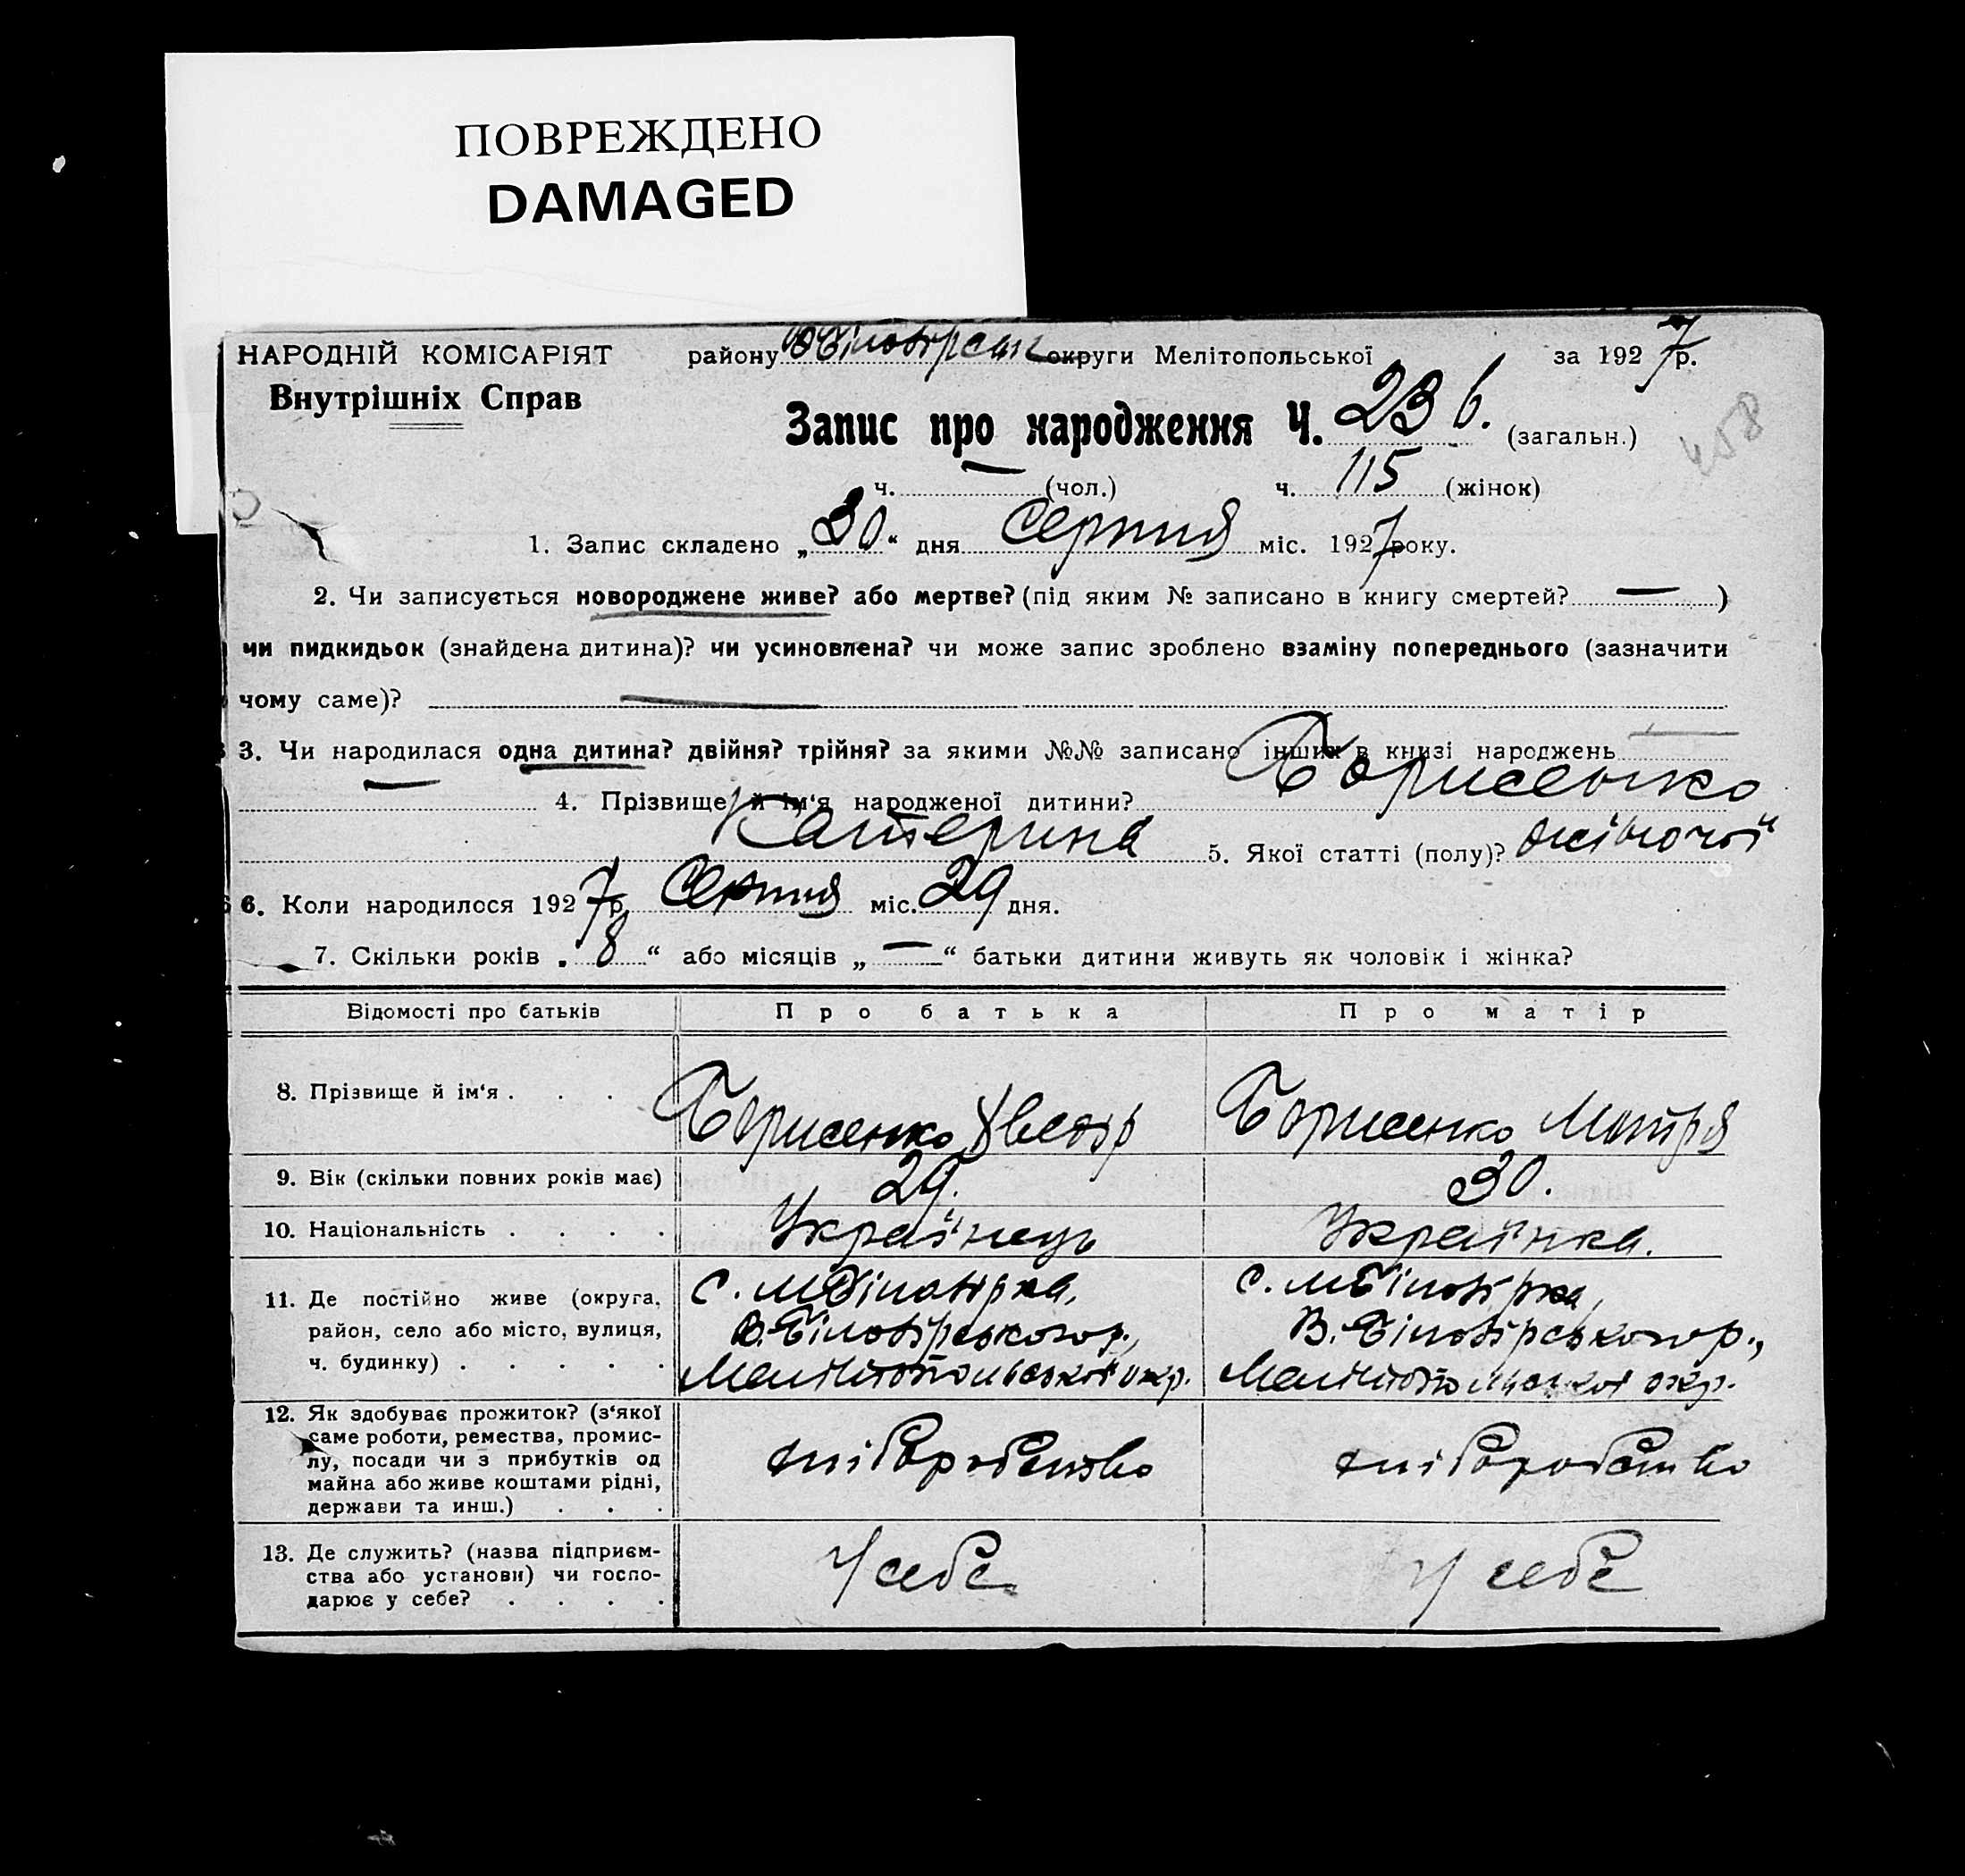 ПОВРЕЖДЕНО
DAMAGED
НАРОДНІЙ КОМІСАРІЯТ району округи Мелітопольської за 1927 р.
Внутрішніх Справ
Запис про народження Ч. 236. (загальн.)
458
ч. — (чол.) ч. 115 (жінок)
1. Запис складено „30“ дня Серпня міс. 1927 року.
2. Чи записується новороджене живе? або мертве? (під яким № записано в книгу смертей? — )
чи пидкидьок (знайдена дитина)? чи усиновлена? чи може запис зроблено взаміну попереднього (зазначити
чому саме)? —
3. Чи народилася одна дитина? двійня? трійня? за якими №№ записано інших в книзі народжень —
— 4. Прізвище й ім‘я народженої дитини? Борисенко
Катерина 5. Якої статті (полу)? жіночої
6. Коли народилося 1927 р. Серпня міс. 29 дня.
7. Скільки років „8“ або місяців „—“ батьки дитини живуть як чоловік і жінка?
Відомості про батьків Про батька Про матір
8. Прізвище й ім‘я . . . Борисенко Борисенко Мотря
9. Вік (скільки повних років має) 29. 30.
10. Національність . . . . Українець Українка.
11. Де постійно живе (округа, район, село або місто, вулиця, ч. будинку) . . . . .
с. М Білозірка,
В. Білозірського р.,
Мелітопольської окр.
с. М Білозірка,
В. Білозірського р.,
Мелітопольської окр.
12. Як здобуває прожиток? (з‘якої
саме роботи, ремества, промис-
лу, посади чи з прибутків од
майна або живе коштами рідні,
держави та инш.) . . .
хліборобство хліборобство
13. Де служить? (назва підприєм-
ства або установи) чи госпо-
дарює у себе? . . . .
У себе У себе